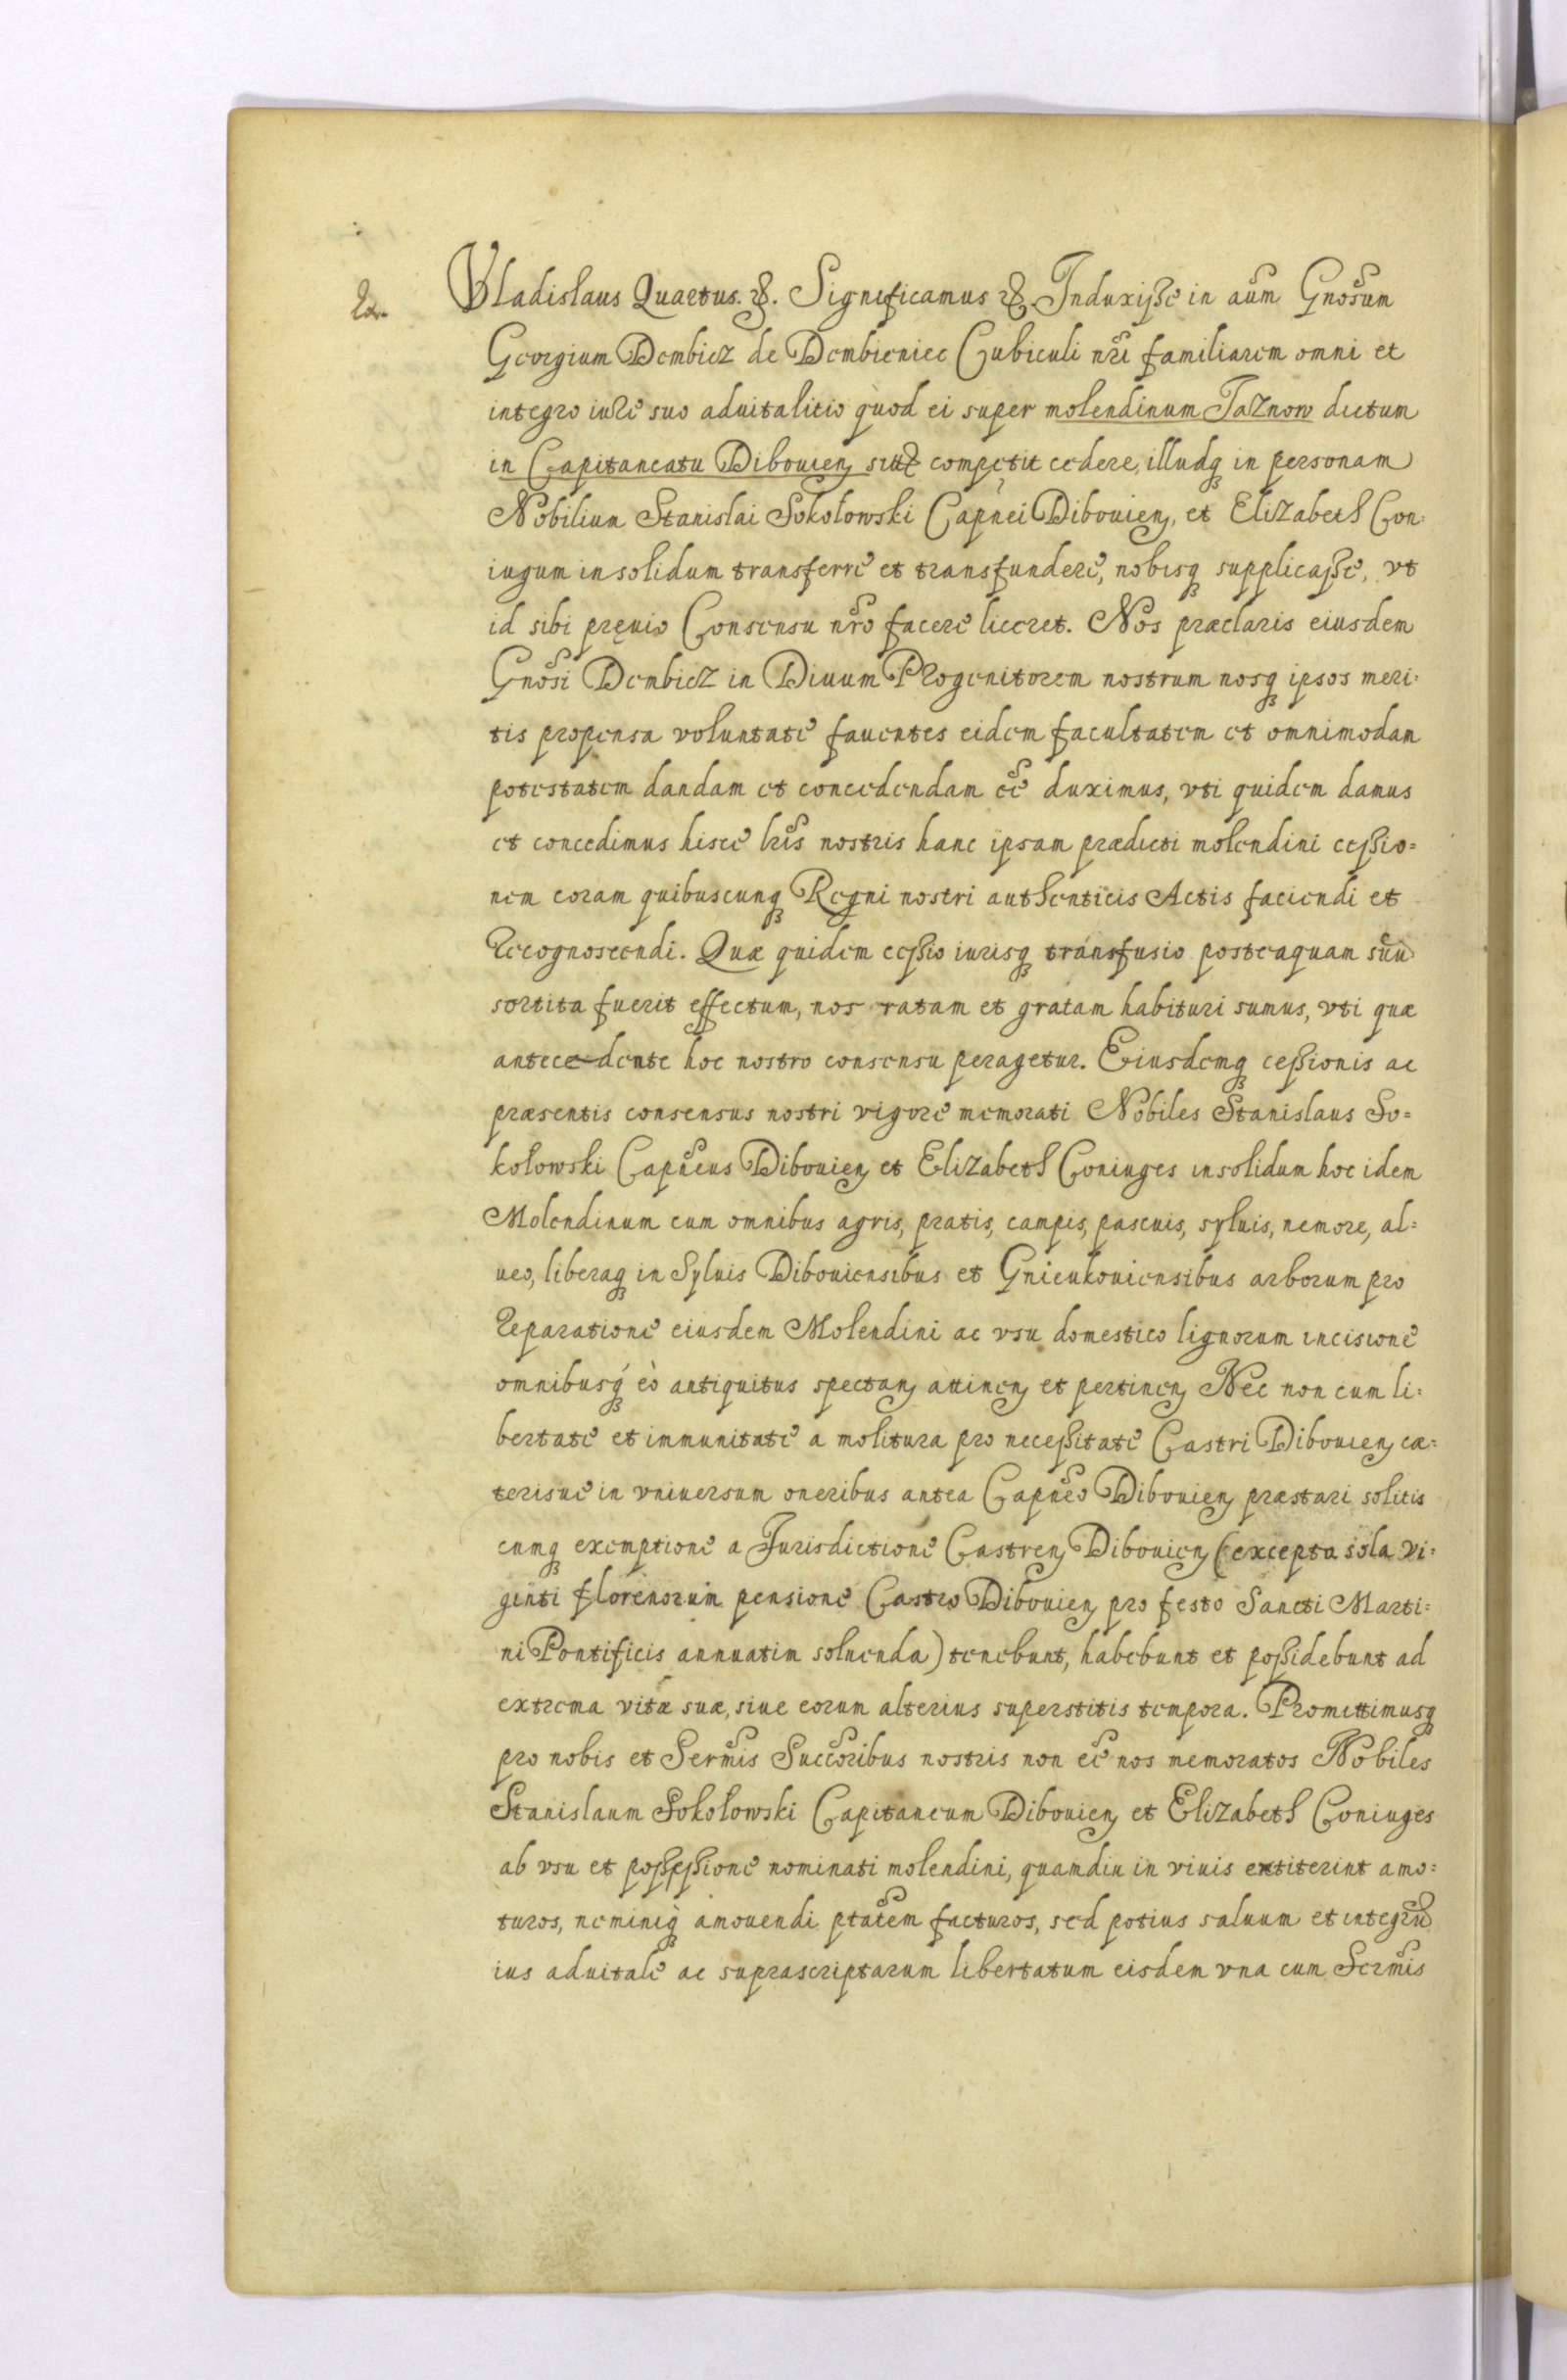 Vladislaus Quartus. &. Significamus &. Induxisse in aũm Gnosum
Georgium Dembicz de Dembieniec Cubiculi nri familiarem omni et
integro iure suo aduitalitio quod ei super molendinum Jaznow dictum
in Capitaneatu Dibouien, competit cedere, illudq in personam
Nobilium Stanislai Sokołowski Capnei Dibouien, et Elizabeth Con:
iugum insolidum transferre et transfundere, nobisq supplicasse, vt
id sibi pręuio Consensu nro facere liceret. Nos præclaris eiusdem
Gnosi Dembicz in Diuum Progenitorem nostrum nosq ipsos meri:
tis propensa voluntate fauentes eidem facultatem et omnimodam
potestatem dandam et concedendam ee duximus, vti quidem damus
et concedimus hisce lris nostris hanc ipsam prædicti molendini cessio=
nem coram quibuscunq Regni nostri authenticis Actis faciendi et
Recognoscendi. Quæ quidem cessio iurisq transfusio posteaquam suũ
sortita fuerit effectum, nos ratam et gratam habituri sumus, vti quæ
antecedente hoc nostro consensu peragetur. Eiusdemq cessionis ac
præsentis consensus nostri vigore memorati Nobiles Stanislaus So=
kołowski Capneus Dibouien et Elizabeth Coniuges insolidum hoc idem
Molendinum cum omnibus agris, pratis, campis, pascuis, syluis, nemore, al=
ueo, liberaq in Syluis Dibouiensibus et Gnieukouiensibus arborum pro
Reparatione eiusdem Molendini ac vsu domestico lignorum incisione
omnibusq eò antiquitus spectan, attinen, et pertinen, Nec non cum li:
bertate et immunitate a molitura pro necessitate Castri Dibouien, cæ:
terisue in vniuersum oneribus antea Capneo Dibouien, præstari solitis
cumq exemptione a Jurisdictione Castren, Dibouien, (excepta sola vi:
ginti florenorum pensione Castro Dibouien, pro festo Sancti Marti:
ni Pontificis annuatim soluenda) tenebunt, habebunt et possidebunt ad
extrema vitæ suæ, siue eorum alterius superstitis tempora. Promittimusq
pro nobis et Sermis Succoribus nostris non ee nos memoratos Nobiles
Stanislaum Sokołowski Capitaneum Dibouien, et Elizabeth Coniuges
ab vsu et possessione nominati molendini, quamdiu in viuis extiterint amo=
turos, neminiq amouendi ptatem facturos, sed potius saluum et integrũ
ius aduitale ac suprascriptarum libertatum eisdem vna cum Sermis